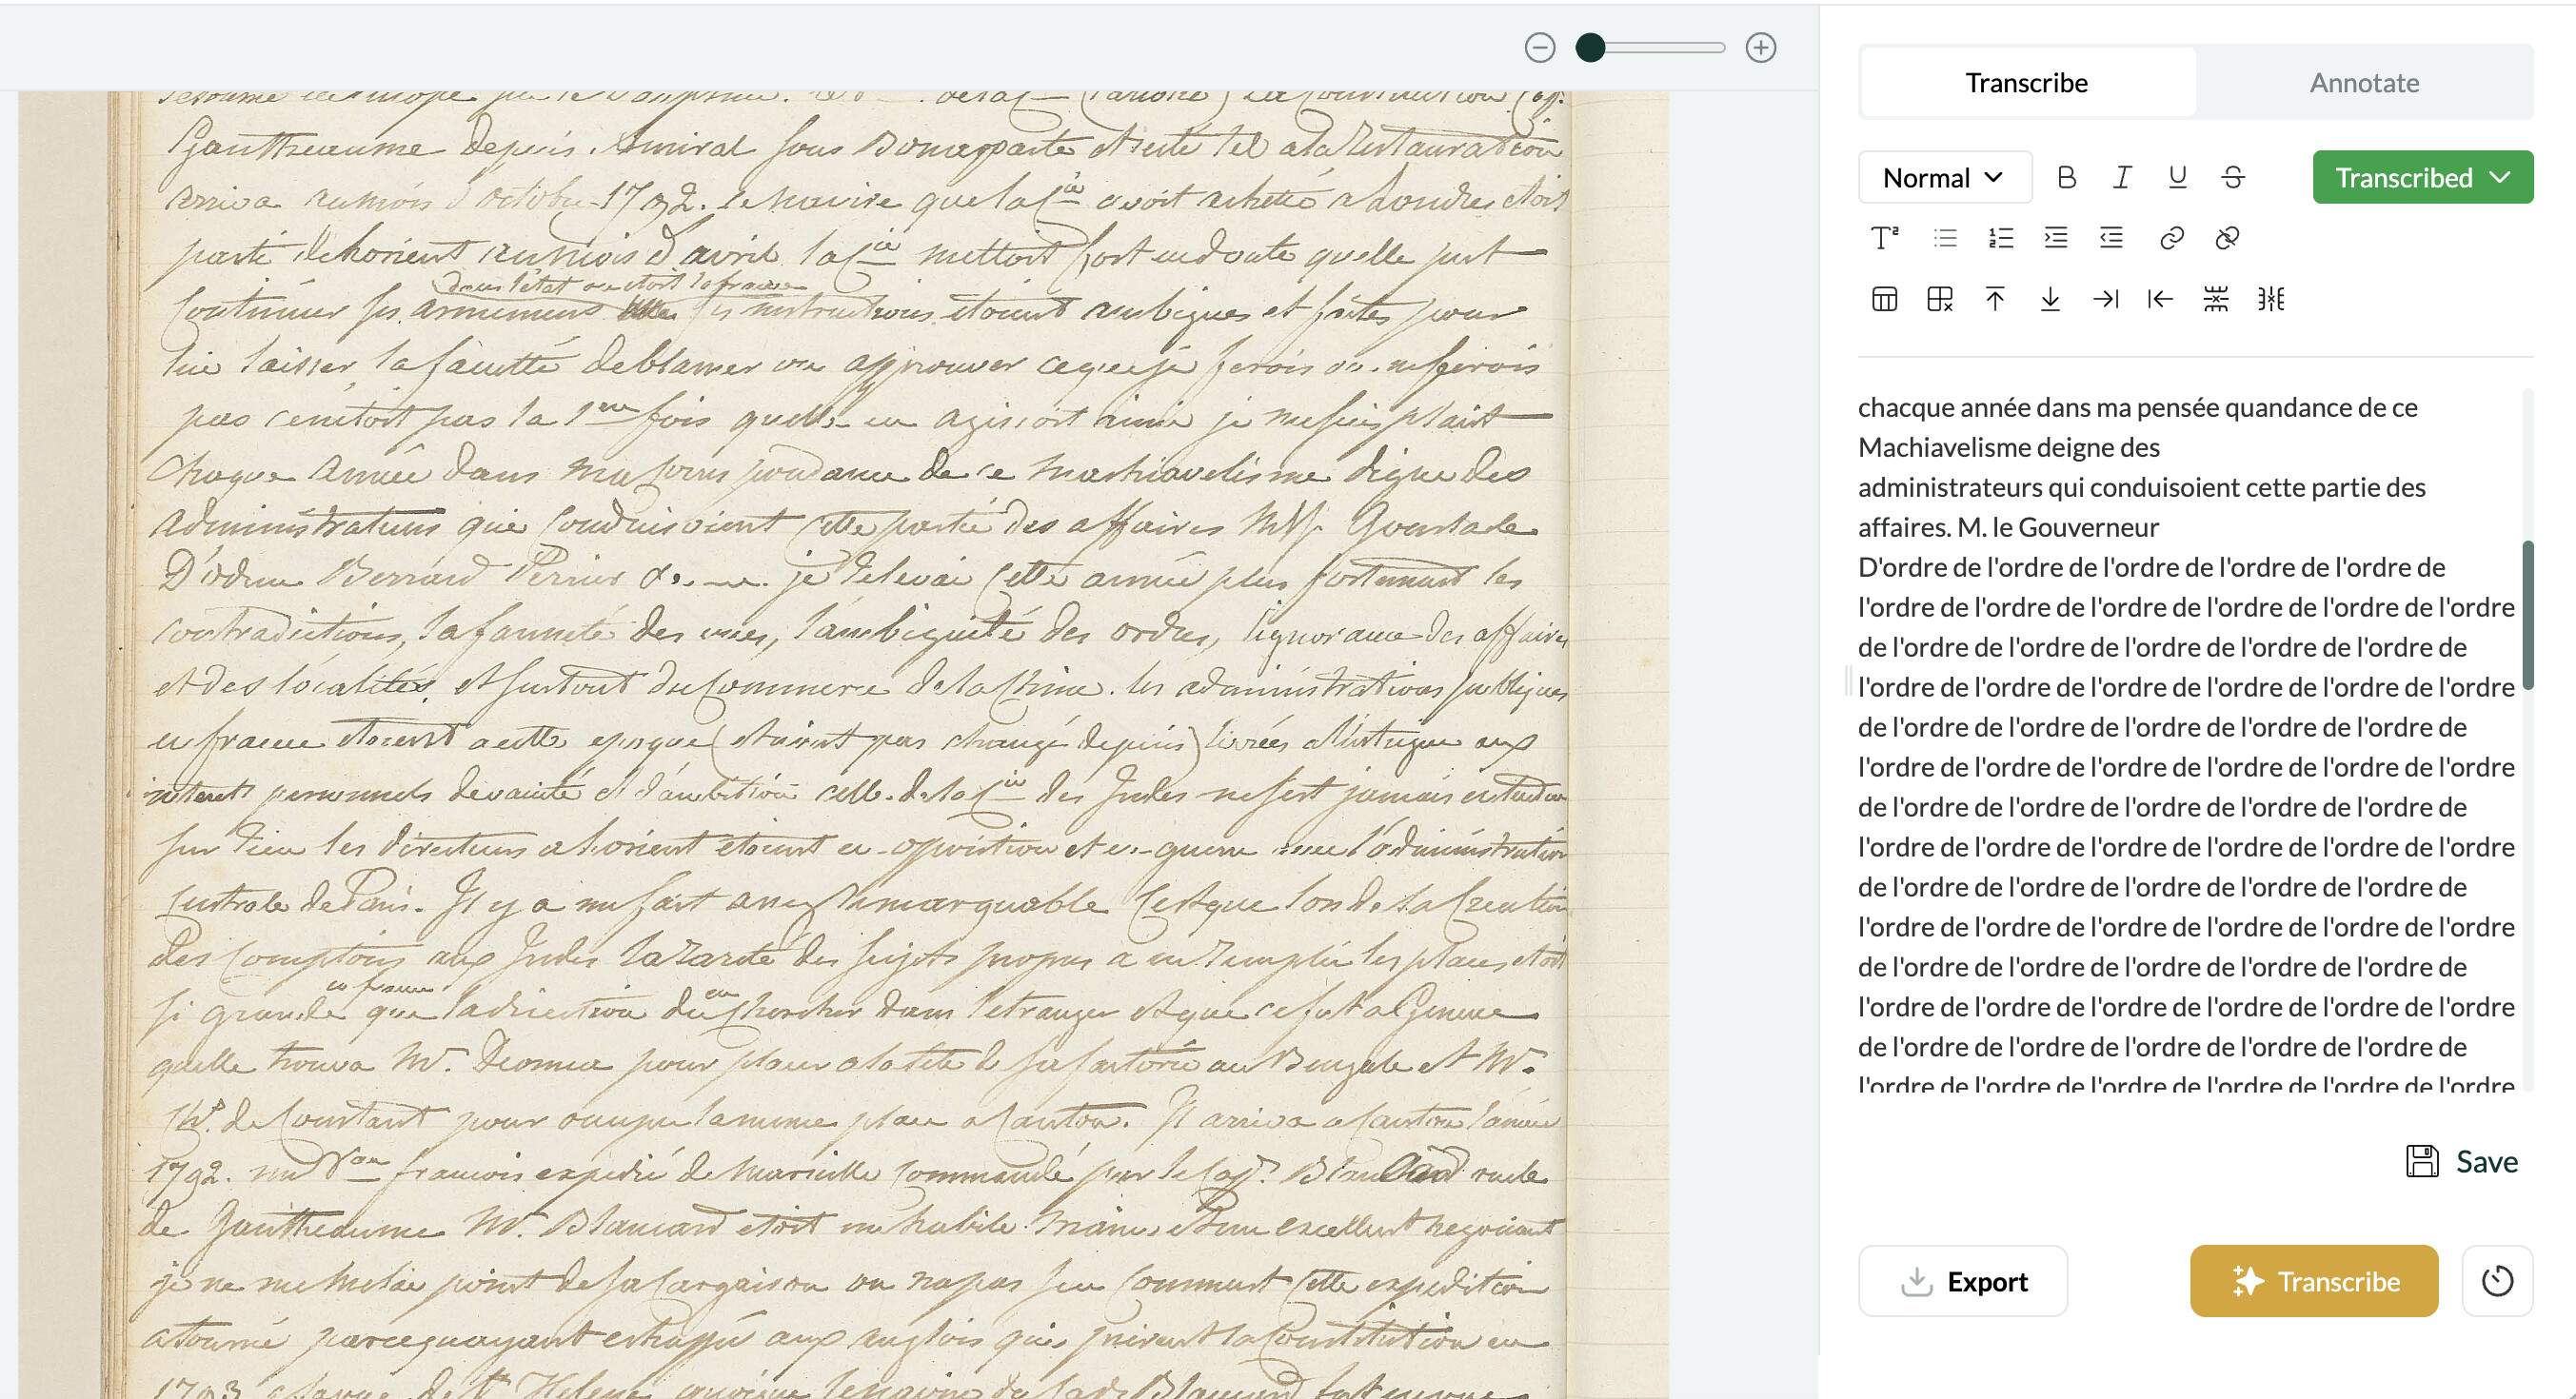 Transcribe
Annotate
Normal
B I U S
Transcribed
T²
Gauttheaume depuis Amiral sous Buonaparte et resté tel a la Restauration
arriva au mois d'octobre 1792. le navire que la Cie avoit acheté a Londres etoit
parti de Lorient au mois d'avril la Cie mettoit fort en doute quelle put
dans l'état ou etoit la france
Continuer ses armemens ses instructions etoient ambigues et faites pour
lui laisser la faculté de blamer ou approuver ce que je ferois ou ne ferois
pas ce n'etoit pas la 1ere fois quelle en agissoit ainsi je me suis plaint
Chaque année dans ma de ce machiavelisme digne des
Administrateurs qui Conduisoient Cette partie des affaires MM.
Bernard Perrier &. je relevai Cette année plus fortement les
contradictions, la fausseté des vues, l'ambiguité des ordres, l'ignorance des affaires
et des localités et surtout du Commerce de la Chine. les administrations publiques
en france etoient a cette epoque (et n'ont pas changé depuis) livrées a l'intrigue aux
interets personnels de vanité et d'ambition celle de la Cie des Indes ne fut jamais
sur rien les directeurs a Lorient etoient en opposition et en guerre avec l'administration
Centrale de Paris. Il y a un fait assez remarquable C'est que lors de la Creation
des Comptoirs aux Indes la rareté des sujets propres a en remplir les places etoit
en france
en
si grande que la direction dut chercher dans l'etranger et que ce fut a Geneve
quelle trouva Mr. pour placer a la tete de sa factorie au Bengale et Mr.
de Constant pour occuper la meme place a Canton. Il arriva a Canton l'année
1792. un Vau francois expedié de Marseille Commandé par le Cap.
de Gauttheaume Mr. Blancard etoit un habile marin et un excellent negociant
je ne me melai point de sa Cargaison on n'a pas su Comment Cette expedition
a tourné parcequayant echappé aux anglois qui prirent la Constitution en
1793 Helene
chacque année dans ma pensée quandance de ce
Machiavelisme deigne des
administrateurs qui conduisoient cette partie des
affaires. M. le Gouverneur
D'ordre de l'ordre de l'ordre de l'ordre de l'ordre de
l'ordre de l'ordre de l'ordre de l'ordre de l'ordre de l'ordre
de l'ordre de l'ordre de l'ordre de l'ordre de l'ordre de
l'ordre de l'ordre de l'ordre de l'ordre de l'ordre de l'ordre
de l'ordre de l'ordre de l'ordre de l'ordre de l'ordre de
l'ordre de l'ordre de l'ordre de l'ordre de l'ordre de l'ordre
de l'ordre de l'ordre de l'ordre de l'ordre de l'ordre de
l'ordre de l'ordre de l'ordre de l'ordre de l'ordre de l'ordre
de l'ordre de l'ordre de l'ordre de l'ordre de l'ordre de
l'ordre de l'ordre de l'ordre de l'ordre de l'ordre de l'ordre
de l'ordre de l'ordre de l'ordre de l'ordre de l'ordre de
l'ordre de l'ordre de l'ordre de l'ordre de l'ordre de l'ordre
de l'ordre de l'ordre de l'ordre de l'ordre de l'ordre de
l'ordre de l'ordre de l'ordre de l'ordre de l'ordre de l'ordre
Save
Export
Transcribe